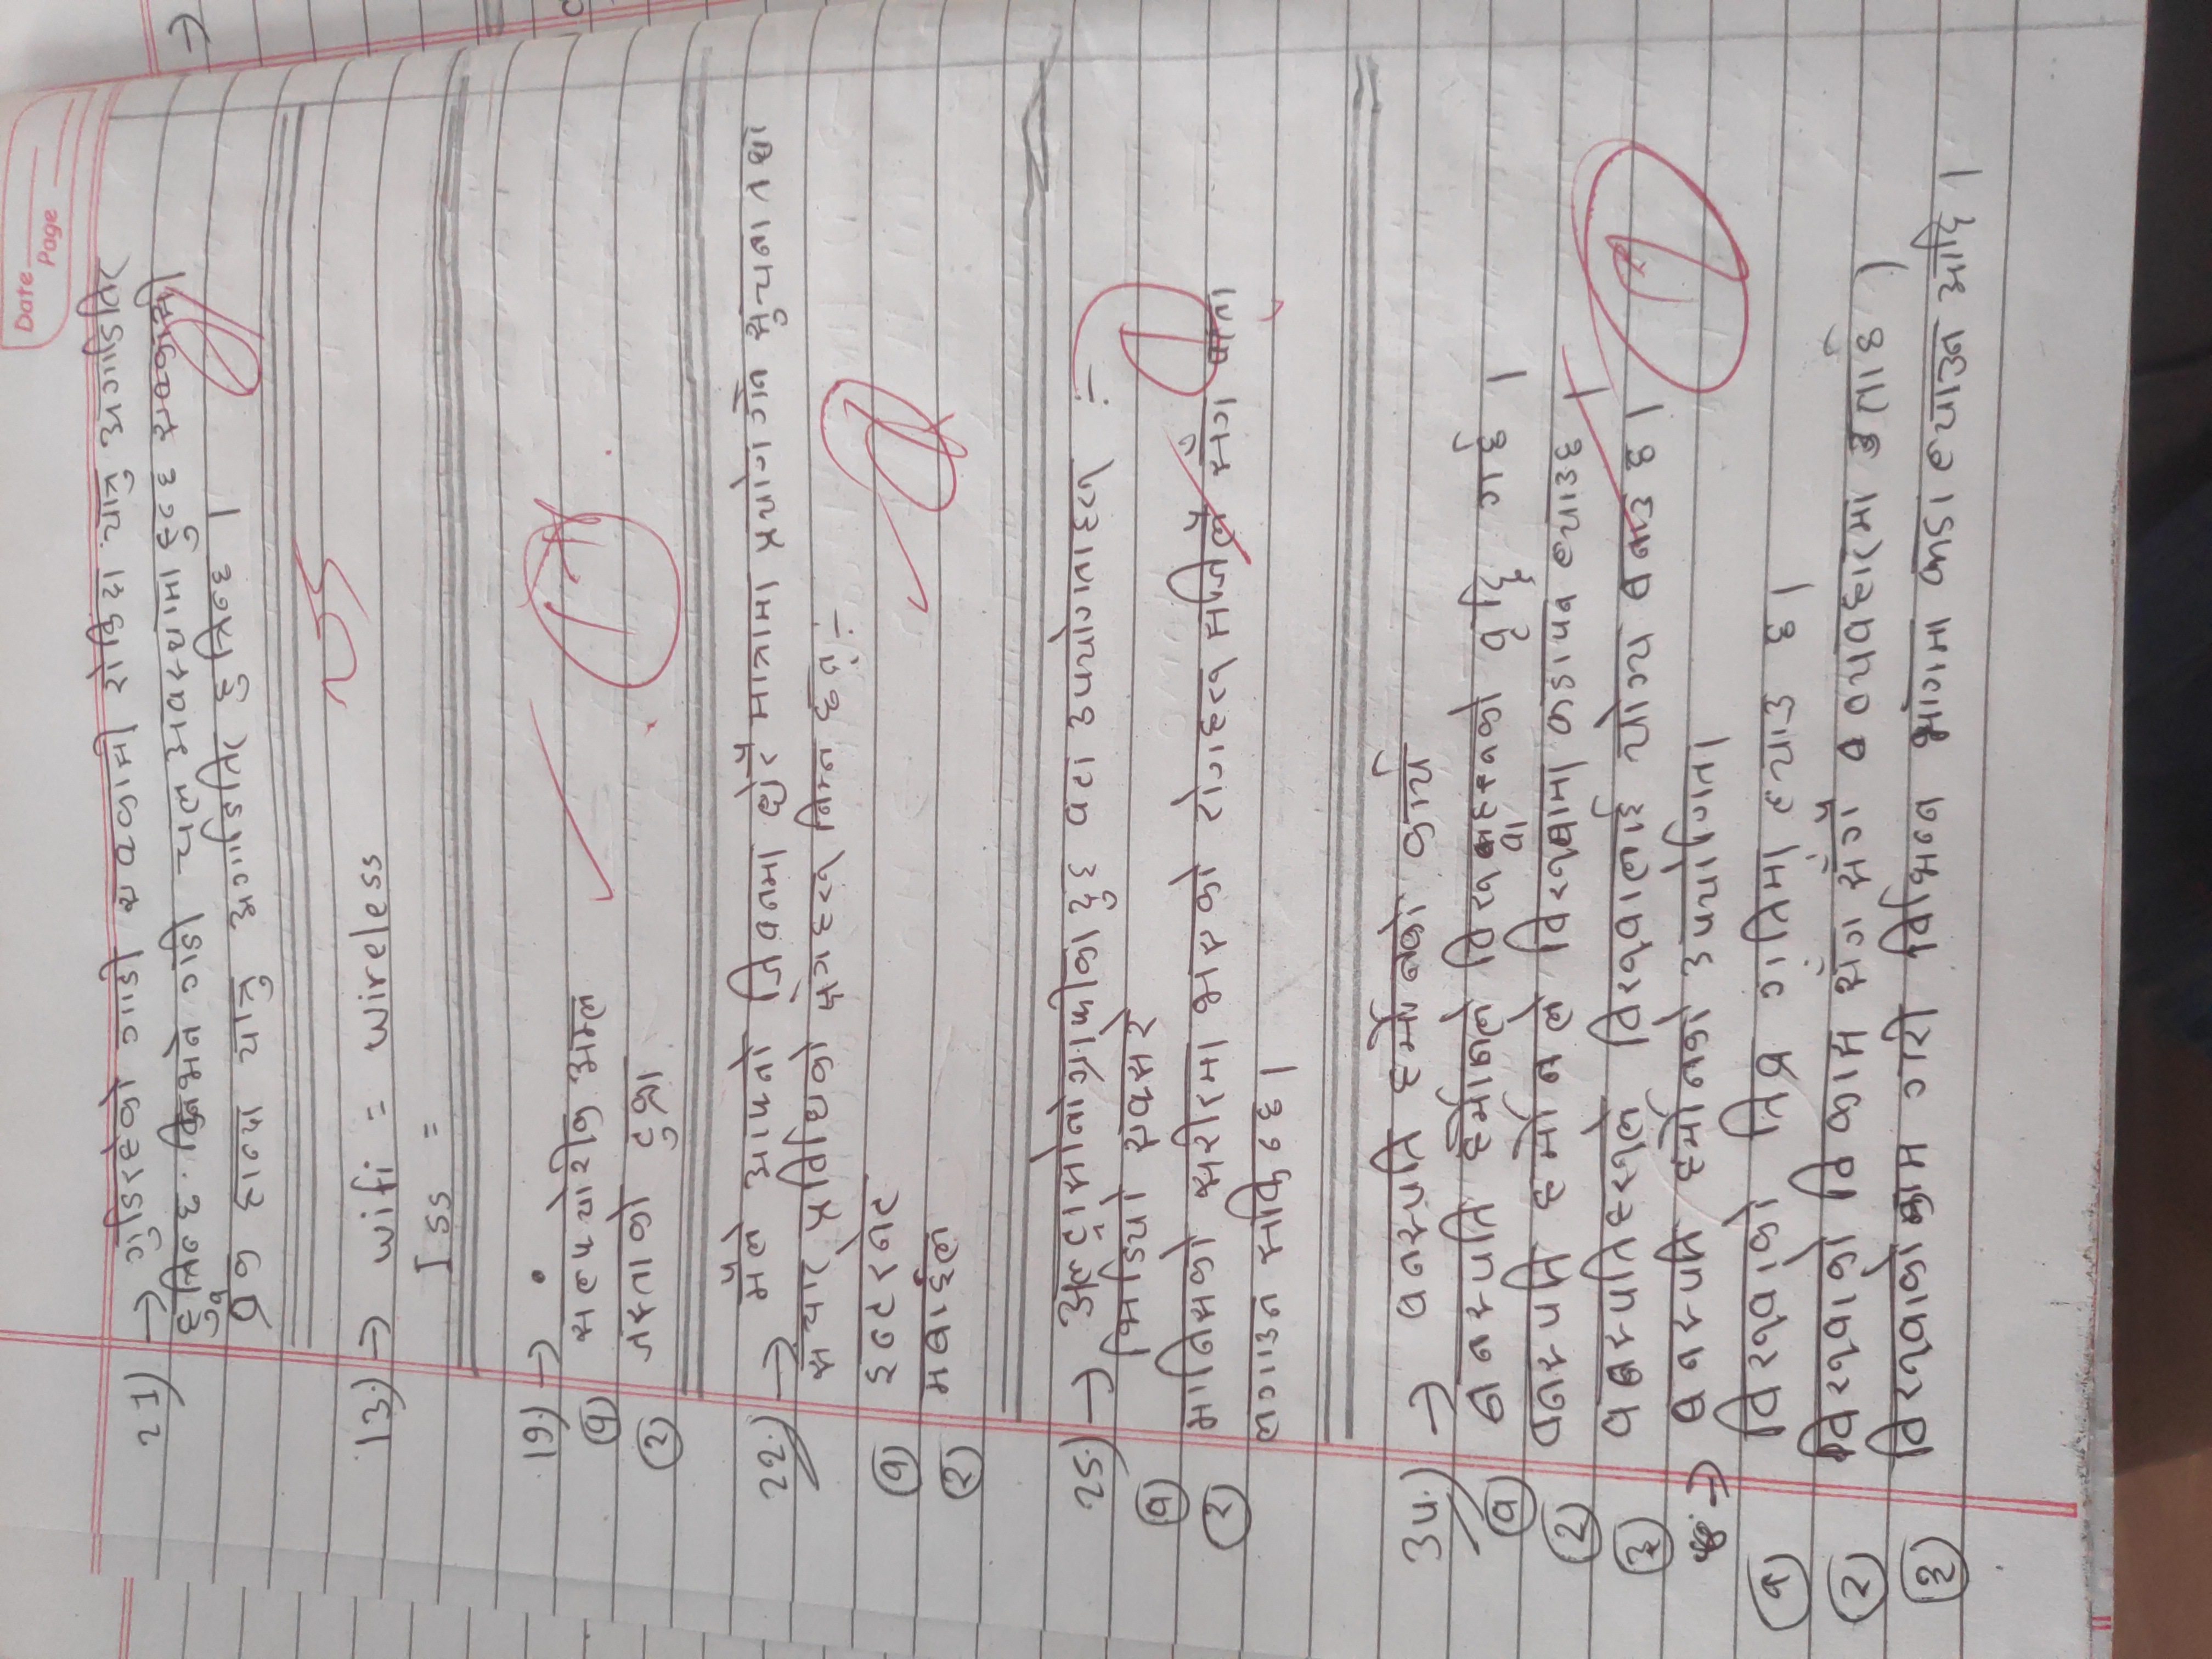 Date
Page
21) → गुडिरहेको गाडी एक्कासी रोकिदा यात्रु अगाडितिर
हुत्तिन्छ किनभने गाडी चल अवस्थामा हुन्छ एक्कासी
ब्रेक हान्दा यात्रु अगाडितिर हुत्तिन्छ ।
13.) → wifi = wireless
Iss =
19.) →
१ सल्फ्योरीक अम्ल
२ जस्ताको टुक्रा
22.) → मैले आफ्नो जिवनमा धेरै मात्रामा प्रयोग गर्ने सुचना तथा
संचार प्रविधिको क्षेत्रहरू निम्न छन् :-
१ इन्टरनेट
२ मबाईल
25.) → अल्ट्रासोनोग्राफीका दुइ वटा उपयोगताहरू :-
१ भिडियो एक्सरे
२ मानिसको सरीरमा भएको रोगहरू सजिलै सँग पत्ता
लगाउन सकिन्छ ।
34.) → बनस्पति हर्मोनको कार्य
१ बनस्पति हर्मोनले विरूवाहरूको वृद्दि गर्छ ।
२ वनस्पति हर्मोनले विरूवामा कडापन ल्याउछ ।
३ वनस्पतिहरूले विरूवालाई योग्य बनाउछ ।
→ बनस्पति हर्मोनको उपयोगिता
१ विरूवाको तिब्र गतिमा ल्याउ छ ।
२ विरूवाको विकास सँग सँगै व्यवहारमा उतार्छ ।
३ विरूवाको काम गरी विभिन्न भागमा कडा ल्याउन आदि ।